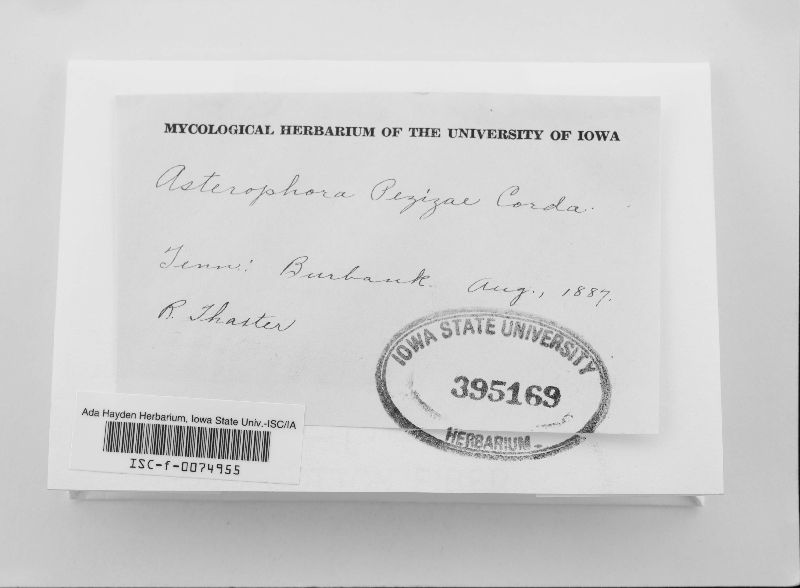 MYCOLOGICAL HERBARIUM OF THE UNIVERSITY OF IOWA
Asterophora Pezizae Corda.
Tenn: Burbank. Aug., 1887.
R. Thaxter
IOWA STATE UNIVERSITY
395169
HERBARIUM
Ada Hayden Herbarium, Iowa State Univ.-ISC/IA
ISC-f-0074955